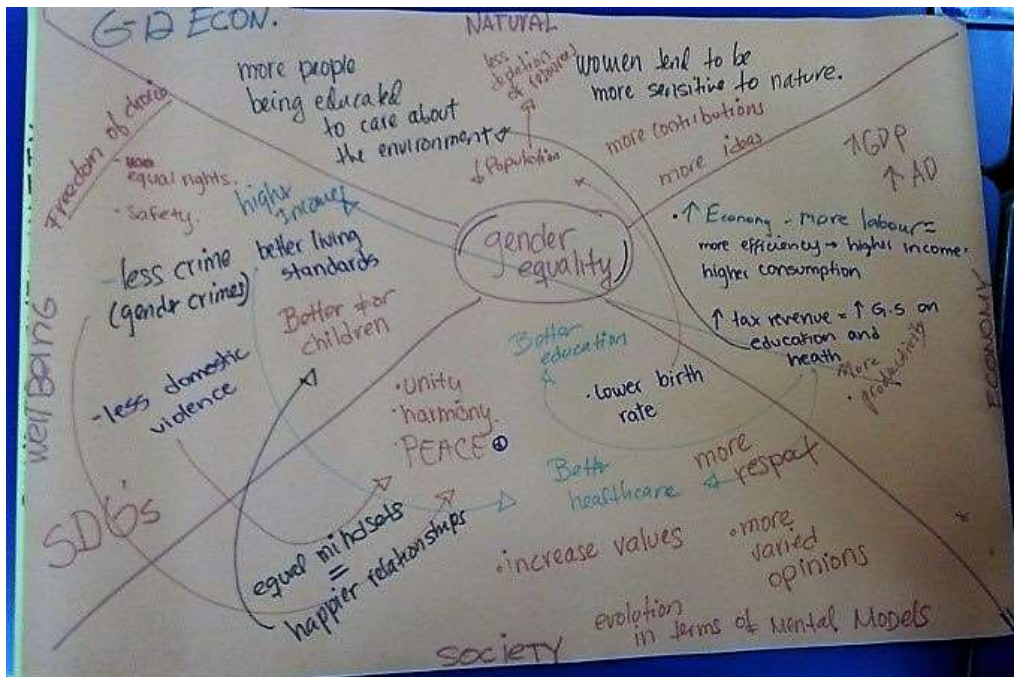 G-12 ECON.
NATURAL
more people
being educated
to care about
the environment
less
depletion
of resources
↓ Population
women tend to be
more sensitive to nature.
more contributions
more ideas
Freedom of choice
equal rights.
· Safety.
higher
Income
- less crime
(gender crimes)
better living
standards
Better for
children
- less domestic
violence
well Being
SDG's
gender
equality
↑ GDP
↑ AD
· ↑ Economy - more labour =
more efficiency → higher income =
higher consumption
↑ tax revenue = ↑ G.S on
education and
heath
· More
productivity
ECONOMY
Better
education
· Lower birth
rate
· unity
· harmony.
· PEACE
Bettr
healthcare
more
respect
equal mindsets
=
happier relationships
· increase values
· more
varied
opinions
evolution
in terms of Mental Models
SOCIETY